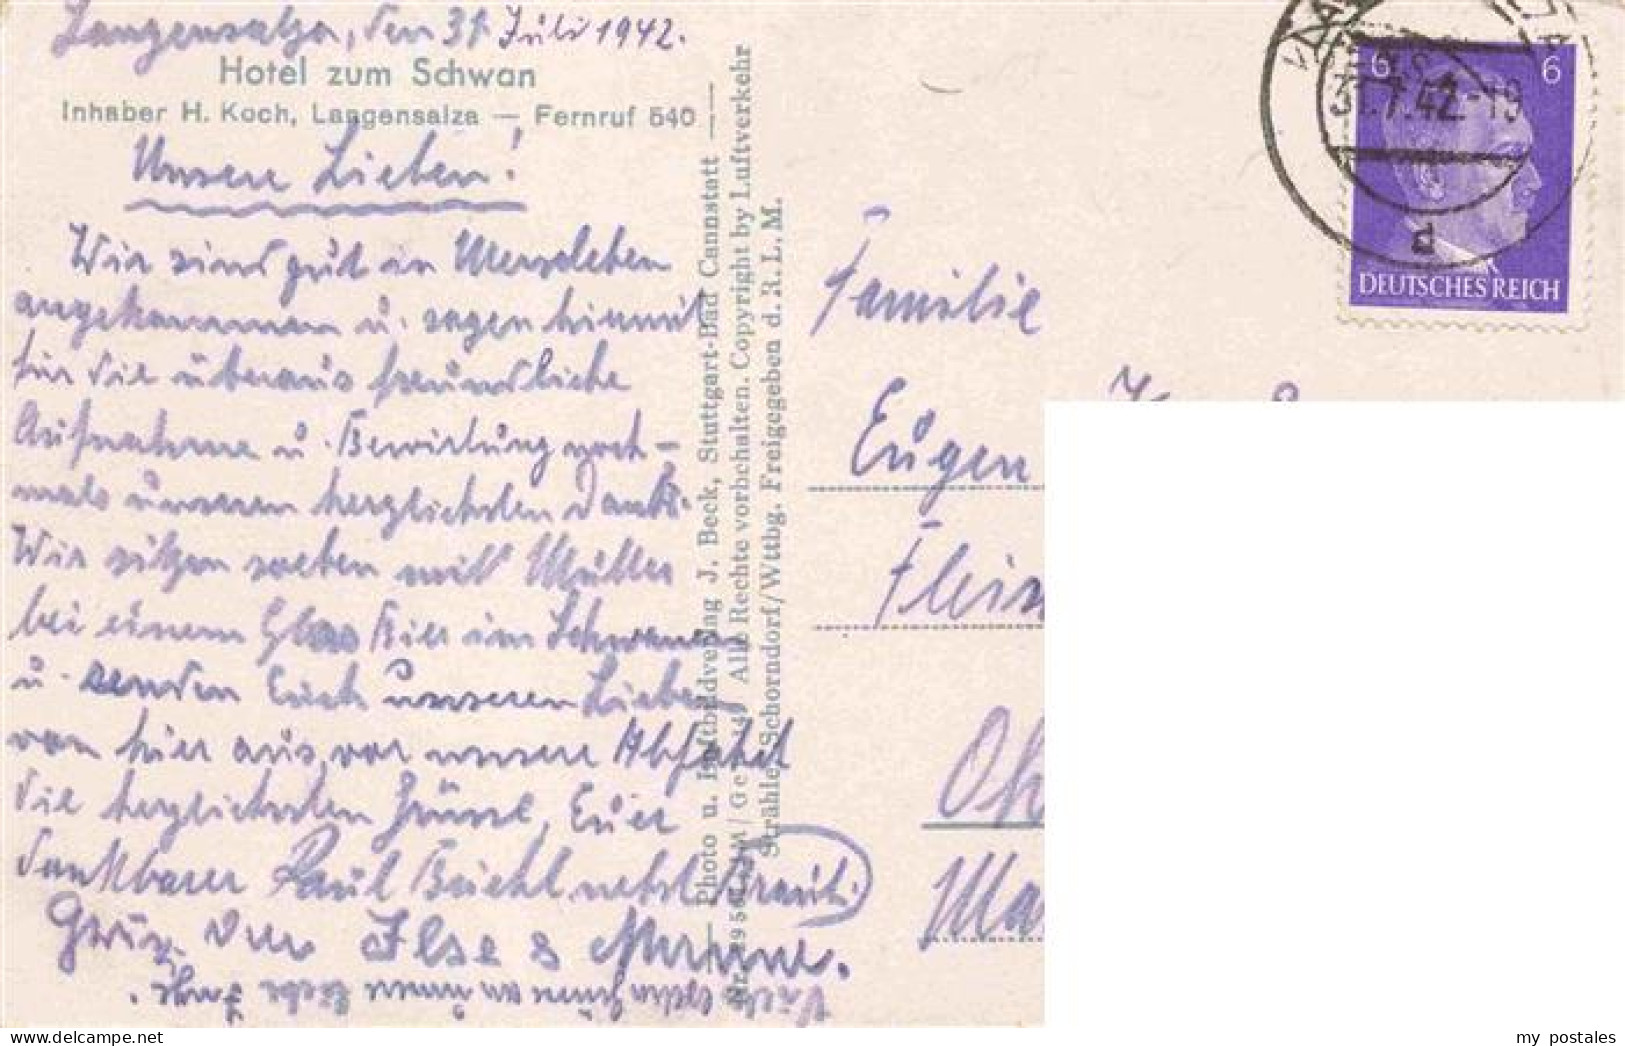 Langensalza, den 31. Juli 1942.
Hotel zum Schwan
Inhaber H. Koch, Langensalza — Fernruf 540
Unsere Lieben!
Wir sind gut in Merxleben
angekommen u. sagen hiermit
für die überaus freundliche
Aufnahme u. Bewirtung noch-
mals unseren herzlichsten Dank.
Wir sitzen soeben mit Mutter
bei einem Glas Bier im Schwanen
u. senden Euch unseren Lieben
von hier aus vor unsere Abfahrt
die herzlichsten Grüsse, Euer
dankbarer Paul nebst Braut.
Ilse &
Photo u. Luftbildverlag J. Beck, Stuttgart-Bad Cannstatt
Alle Rechte vorbehalten. Copyright by Luftverkehr
Strähle, Schorndorf/Wttbg. Freigegeben d. R. L. M.
6 6
31.7.42.-19
d
DEUTSCHES REICH
Familie
Eugen
my postales